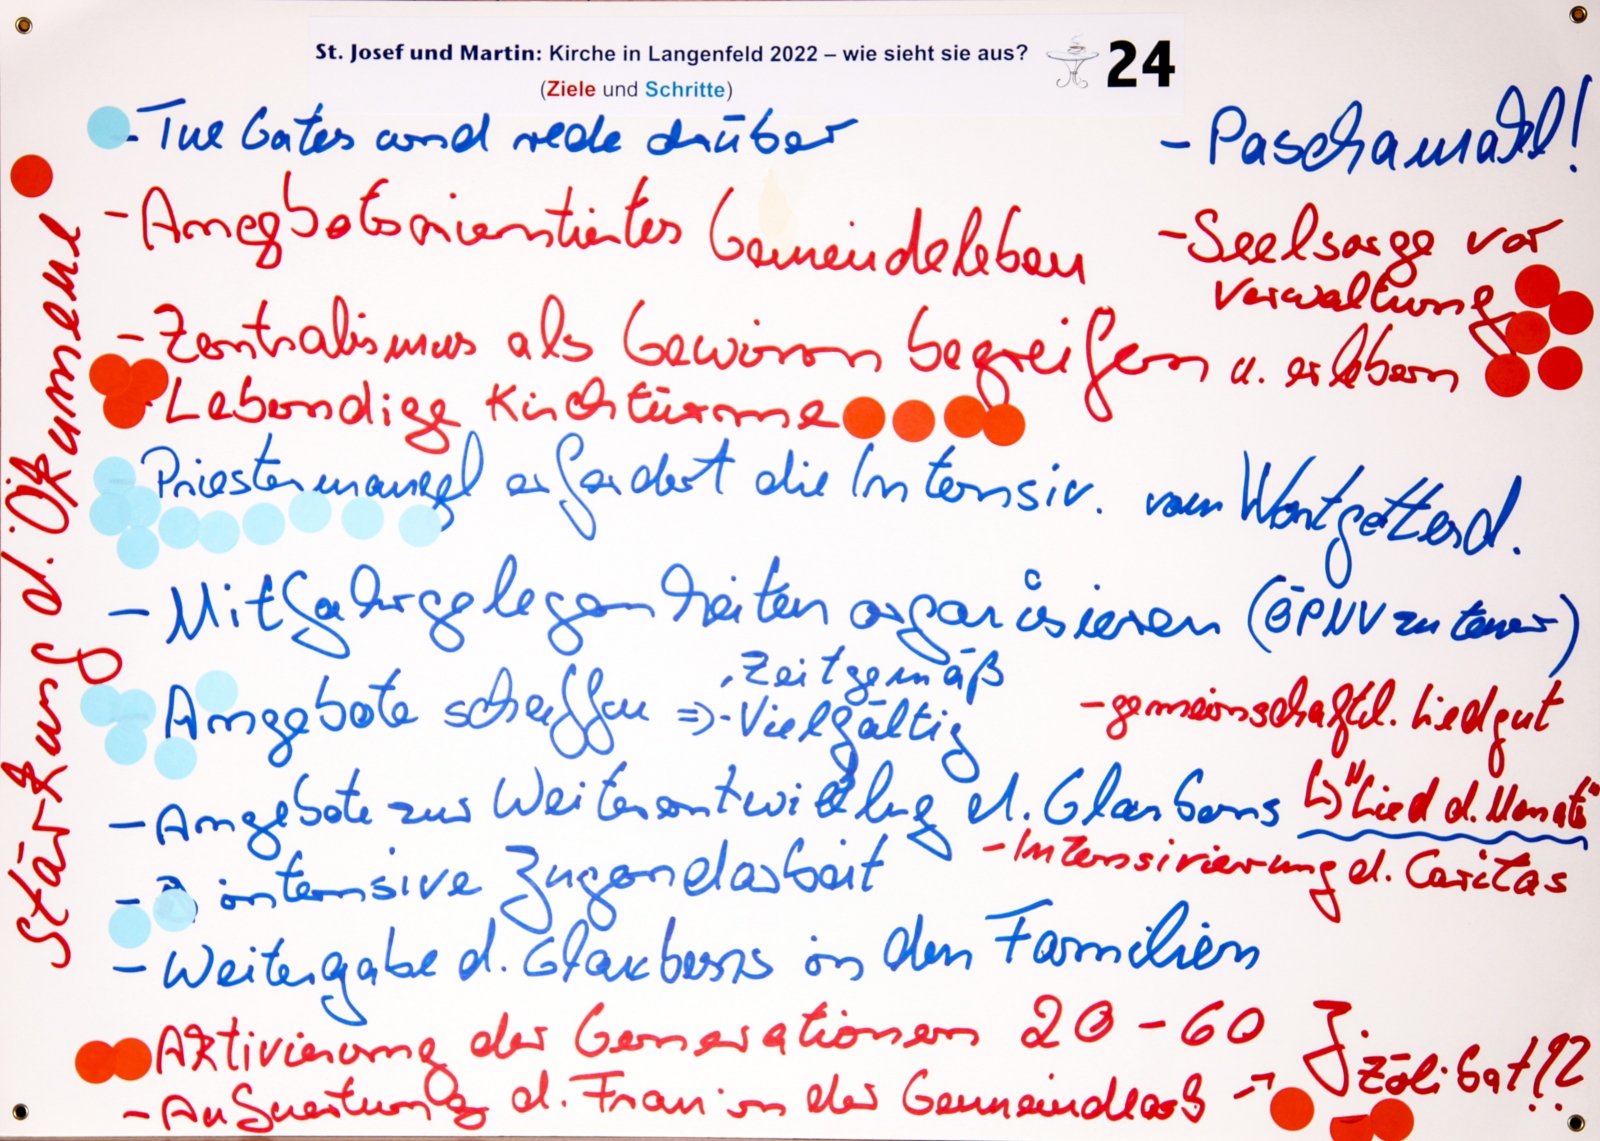 St. Josef und Martin: Kirche in Langenfeld 2022 – wie sieht sie aus?
(Ziele und Schritte)
24
- Tue Gutes und rede drüber
- Angebotsorientiertes Gemeindeleben
- Zentralismus als Gewinn begreifen u. erleben
- Lebendige Kirchtürme
Priestermangel erfordert die Intensiv. vom Wortgottesd.
- Mitfahrgelegenheiten organisieren (ÖPNV zu teuer)
Angebote schaffen => - Zeitgemäß
- Vielfältig
- Angebote zur Weiterentwicklug d. Glaubens
- intensive Jugendarbeit
- Weitergabe d. Glaubens in den Familien
Aktivierung der Generationen 20 - 60 J.
- Aufwertung d. Frau in der Gemeindearb
- Paschamahl!
- Seelsorge vor
Verwaltung
- gemeinschaftl. Liedgut
↳ "Lied d. Monats"
- Intensivierung d. Caritas
→ Zölibat!??
Stärkung d. Ökumene